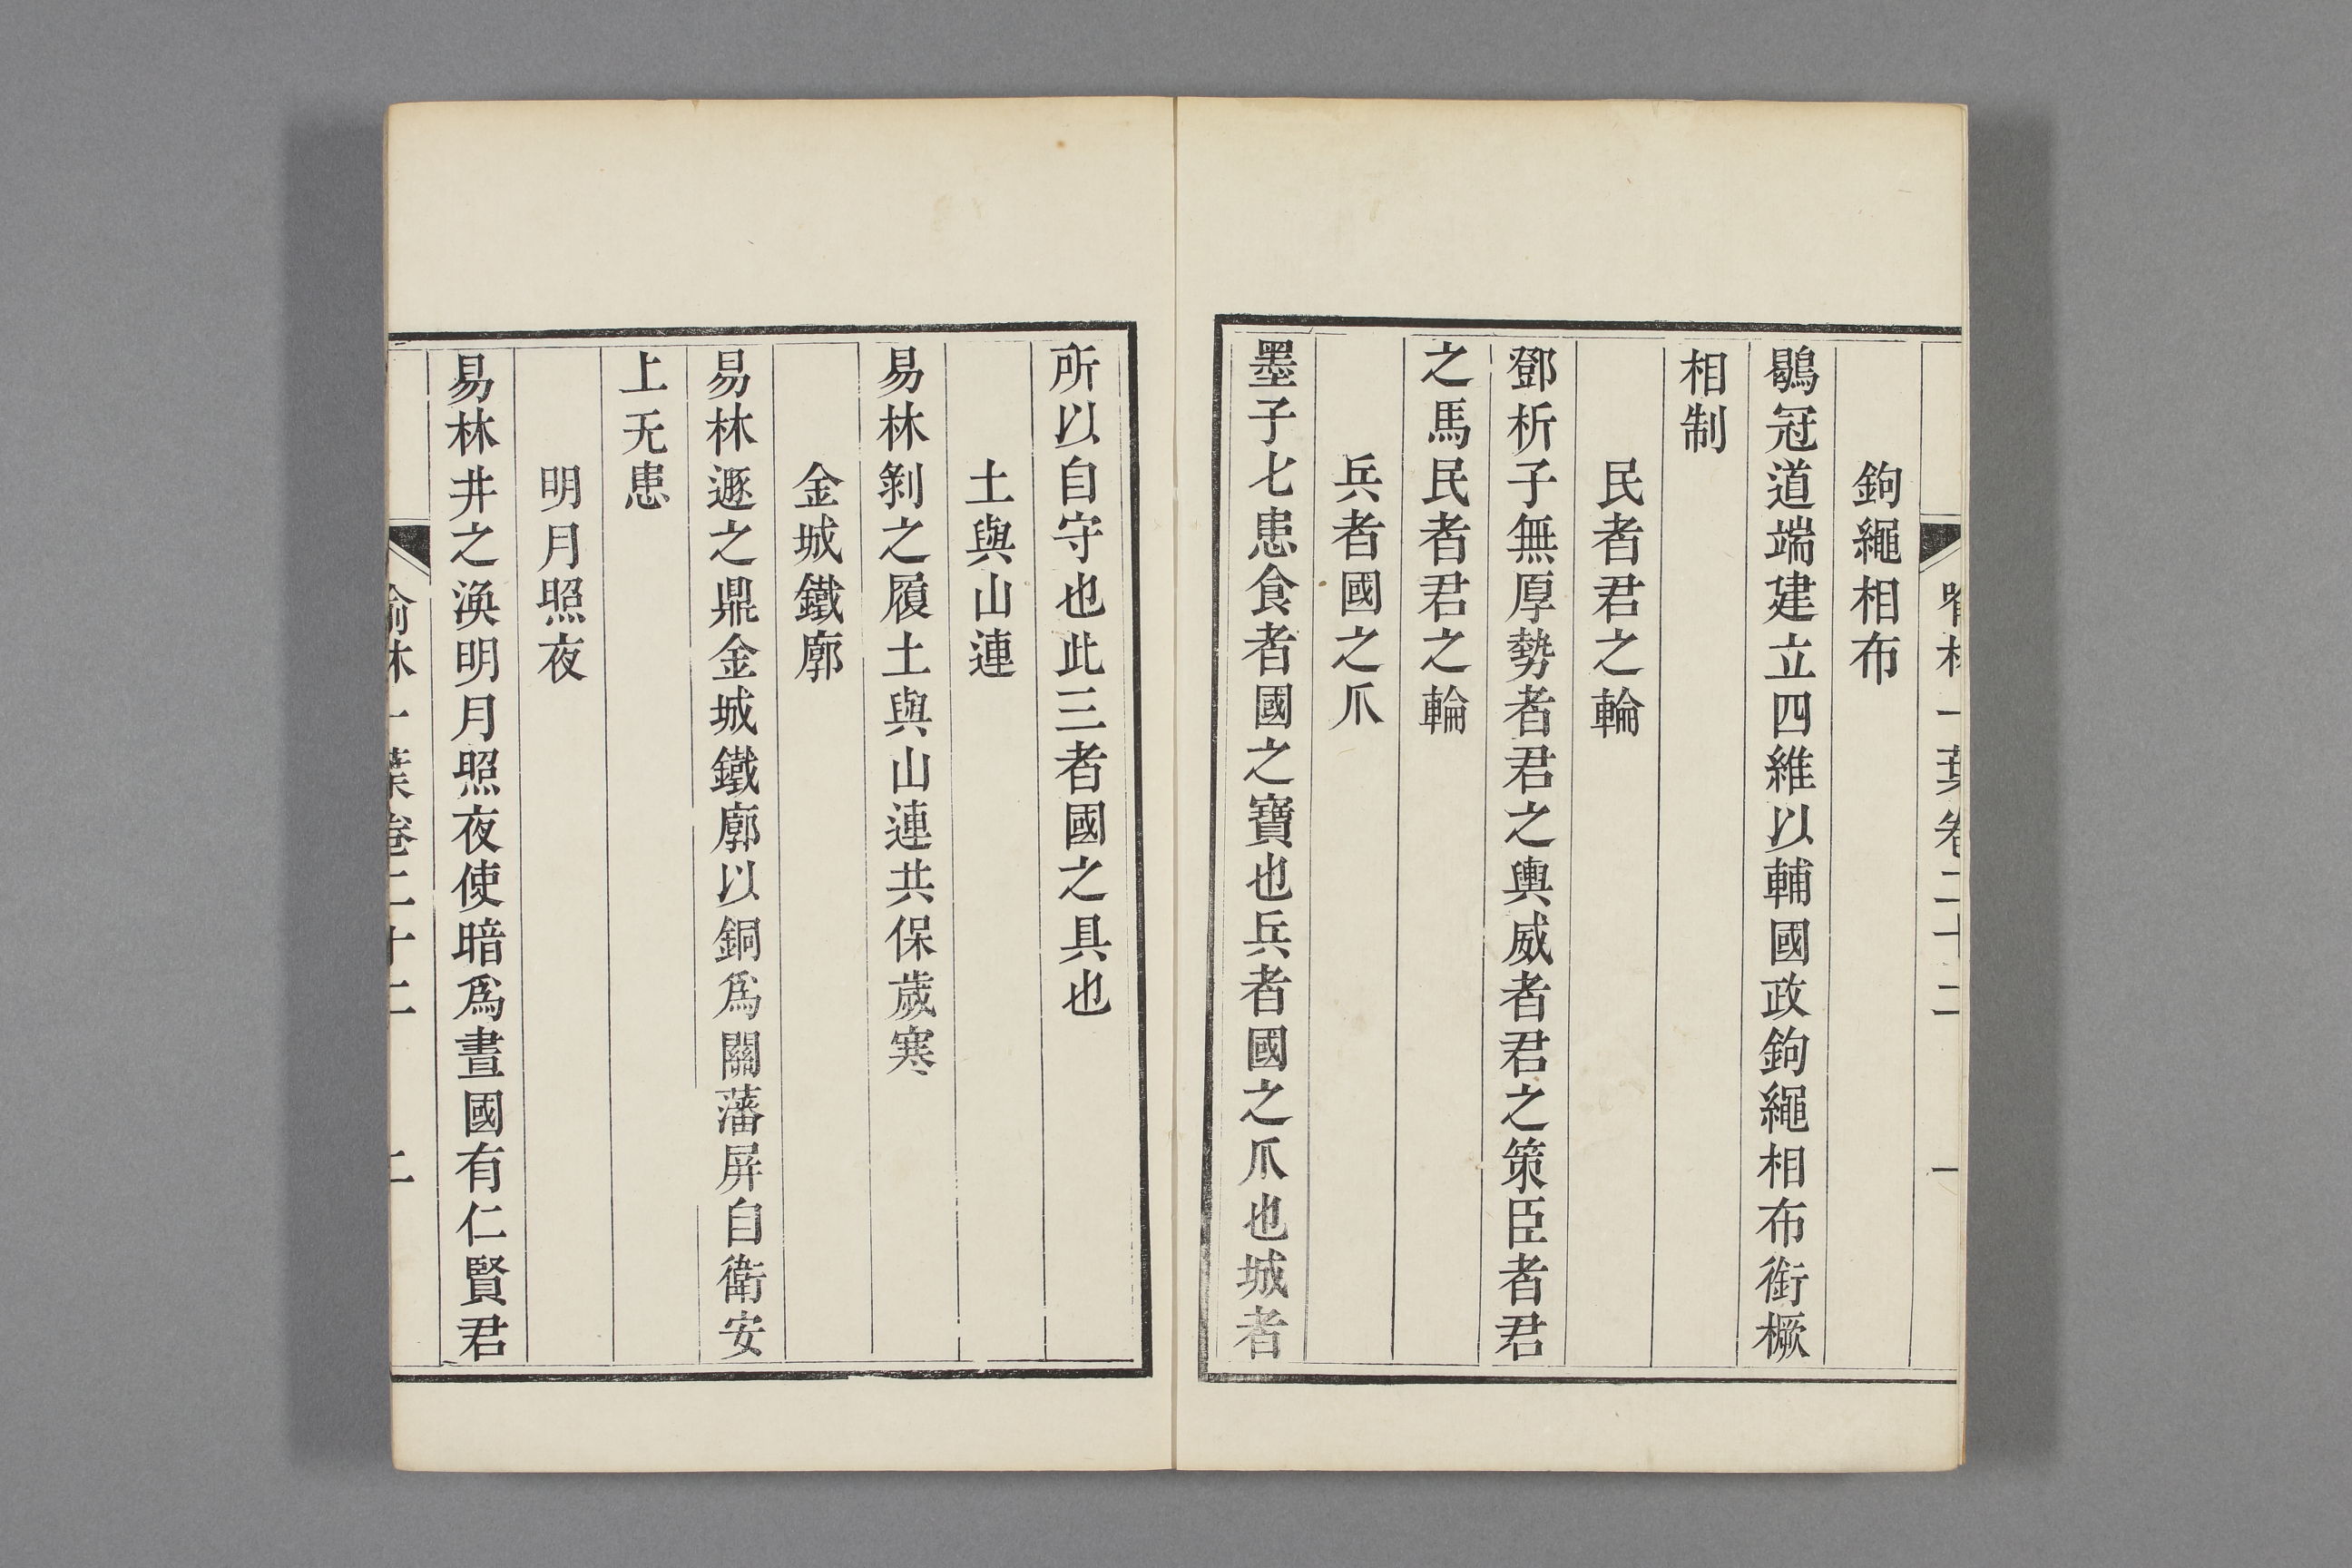 喻林一葉卷二十二 一
鉤繩相布
鶡冠道端建立四維以輔國政鉤繩相布銜橛
相制
民者君之輪
鄧析子無厚勢者君之輿威者君之策臣者君
之馬民者君之輪
兵者國之爪
墨子七患食者國之寶也兵者國之爪也城者
所以自守也此三者國之具也
土與山連
易林剝之履土與山連共保歲寒
金城鐵廓
易林遯之鼎金城鐵廓以銅爲關藩屏自衛安
上无患
明月照夜
易林井之渙明月照夜使暗爲晝國有仁賢君
喻林一葉卷二十二 二